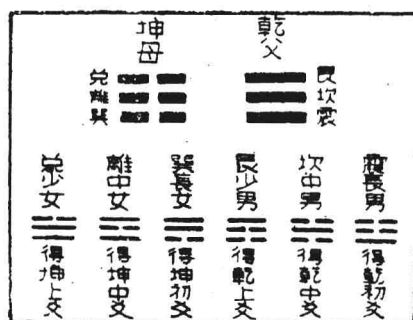 乾父
艮
坎
震
坤母
兌
離
巽
震長男
得乾初爻
坎中男
得乾中爻
艮少男
得乾上爻
巽長女
得坤初爻
離中女
得坤中爻
兌少女
得坤上爻